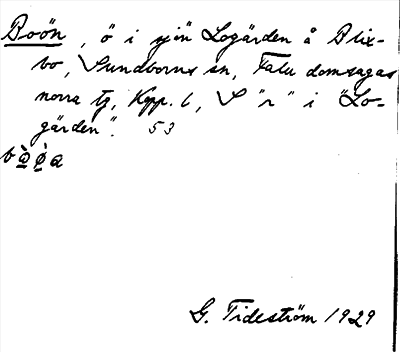 Boön, ö i sjön Logärden å Blix-
bo, Sundborns sn, Falu domsagas
norra tg, Kpp. l, S "r" i "Lo-
gärden". 53
bò̤ø̤̀a
G. Tideström 1929